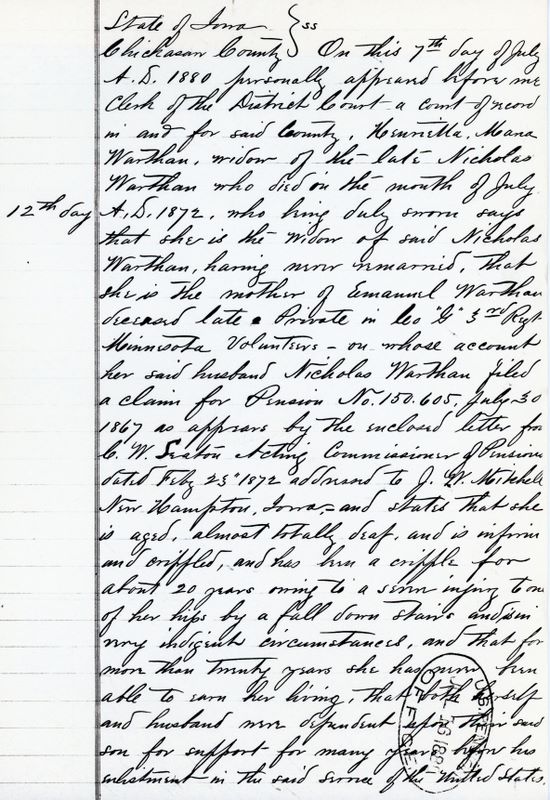 State of Iowa } ss
Chickasaw County On this 7th day of July
A.D. 1880 personally appeared before me
Clerk of the District Court a court of record
in and for said County, Henrietta, Maria
Warthan, widow of the late Nicholas
Warthan who died in the month of July
12th day A.D. 1872, who being duly sworn says
that she is the widow of said Nicholas
Warthan, having never remarried, that
she is the mother of Emanuel Warthan
deceased late a Private in Co "G" 3rd Regt
Minnesota Volunteers - on whose account
her said husband Nicholas Warthan filed
a claim for Pension No. 150.605, July 30
1867 as appears by the enclosed letter from
C. W. Seaton Acting Commissioner of Pensions
dated Feby 23d 1872 addressed to J. W. Mitchell
New Hampton, Iowa, - and states that she
is aged, almost totally deaf, and is infirm
and crippled, and has been a cripple for
about 20 years owing to a severe injury to one
of her hips by a fall down stairs and is in
very indigent circumstances, and that for
more than twenty years she has never been
able to earn her living, that both herself
and husband were dependent upon their said
son for support for many years before his
enlistment in the said service of the United States.
U.S. PEN
OFFICE